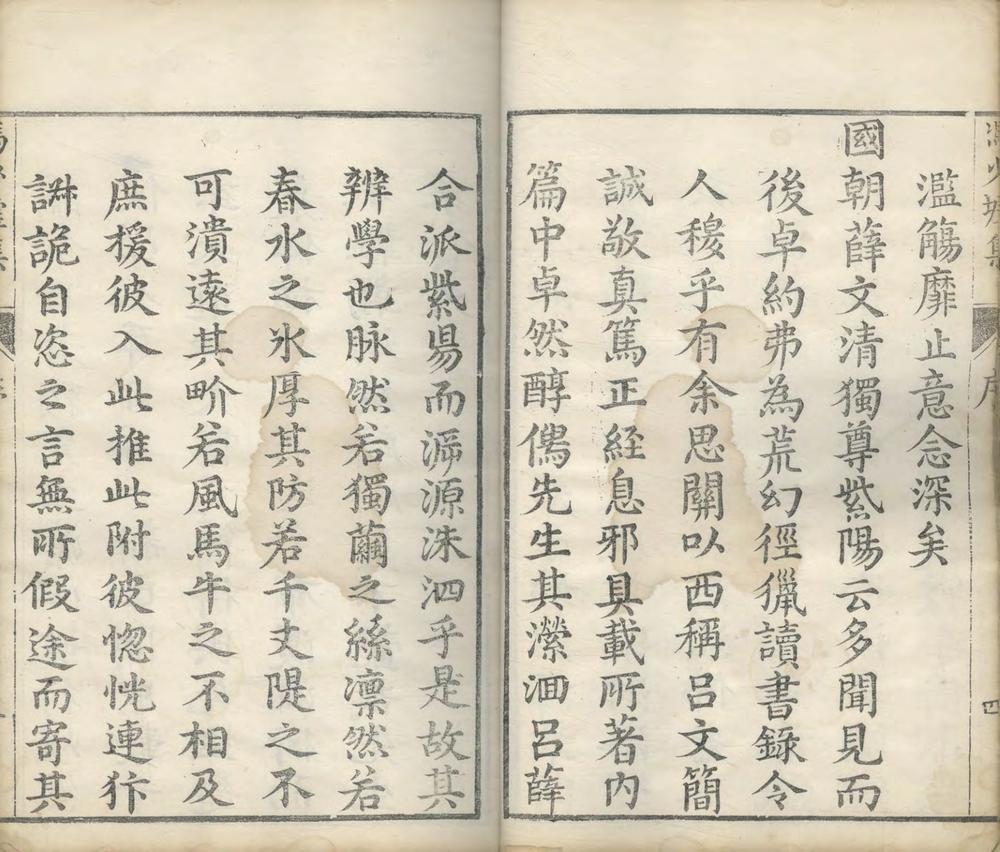 濫觴靡止意念深矣
國朝薛文清獨尊紫陽云多聞見而
後卓約弗為荒幻徑獵讀書錄令
人穆乎有余思關以西稱呂文簡
誠敬真篤正経息邪具載所著内
篇中卓然醇儒先生其瀠洄呂薛
合派紫昜而泝源洙泗乎是故其
辨學也脉然若獨繭之絲凛然若
春水之氷厚其防若千丈隄之不
可潰遠其畍若風馬牛之不相及
庶援彼入此推此附彼惚恍連犿
諔詭自恣之言無所假途而寄其
序
四